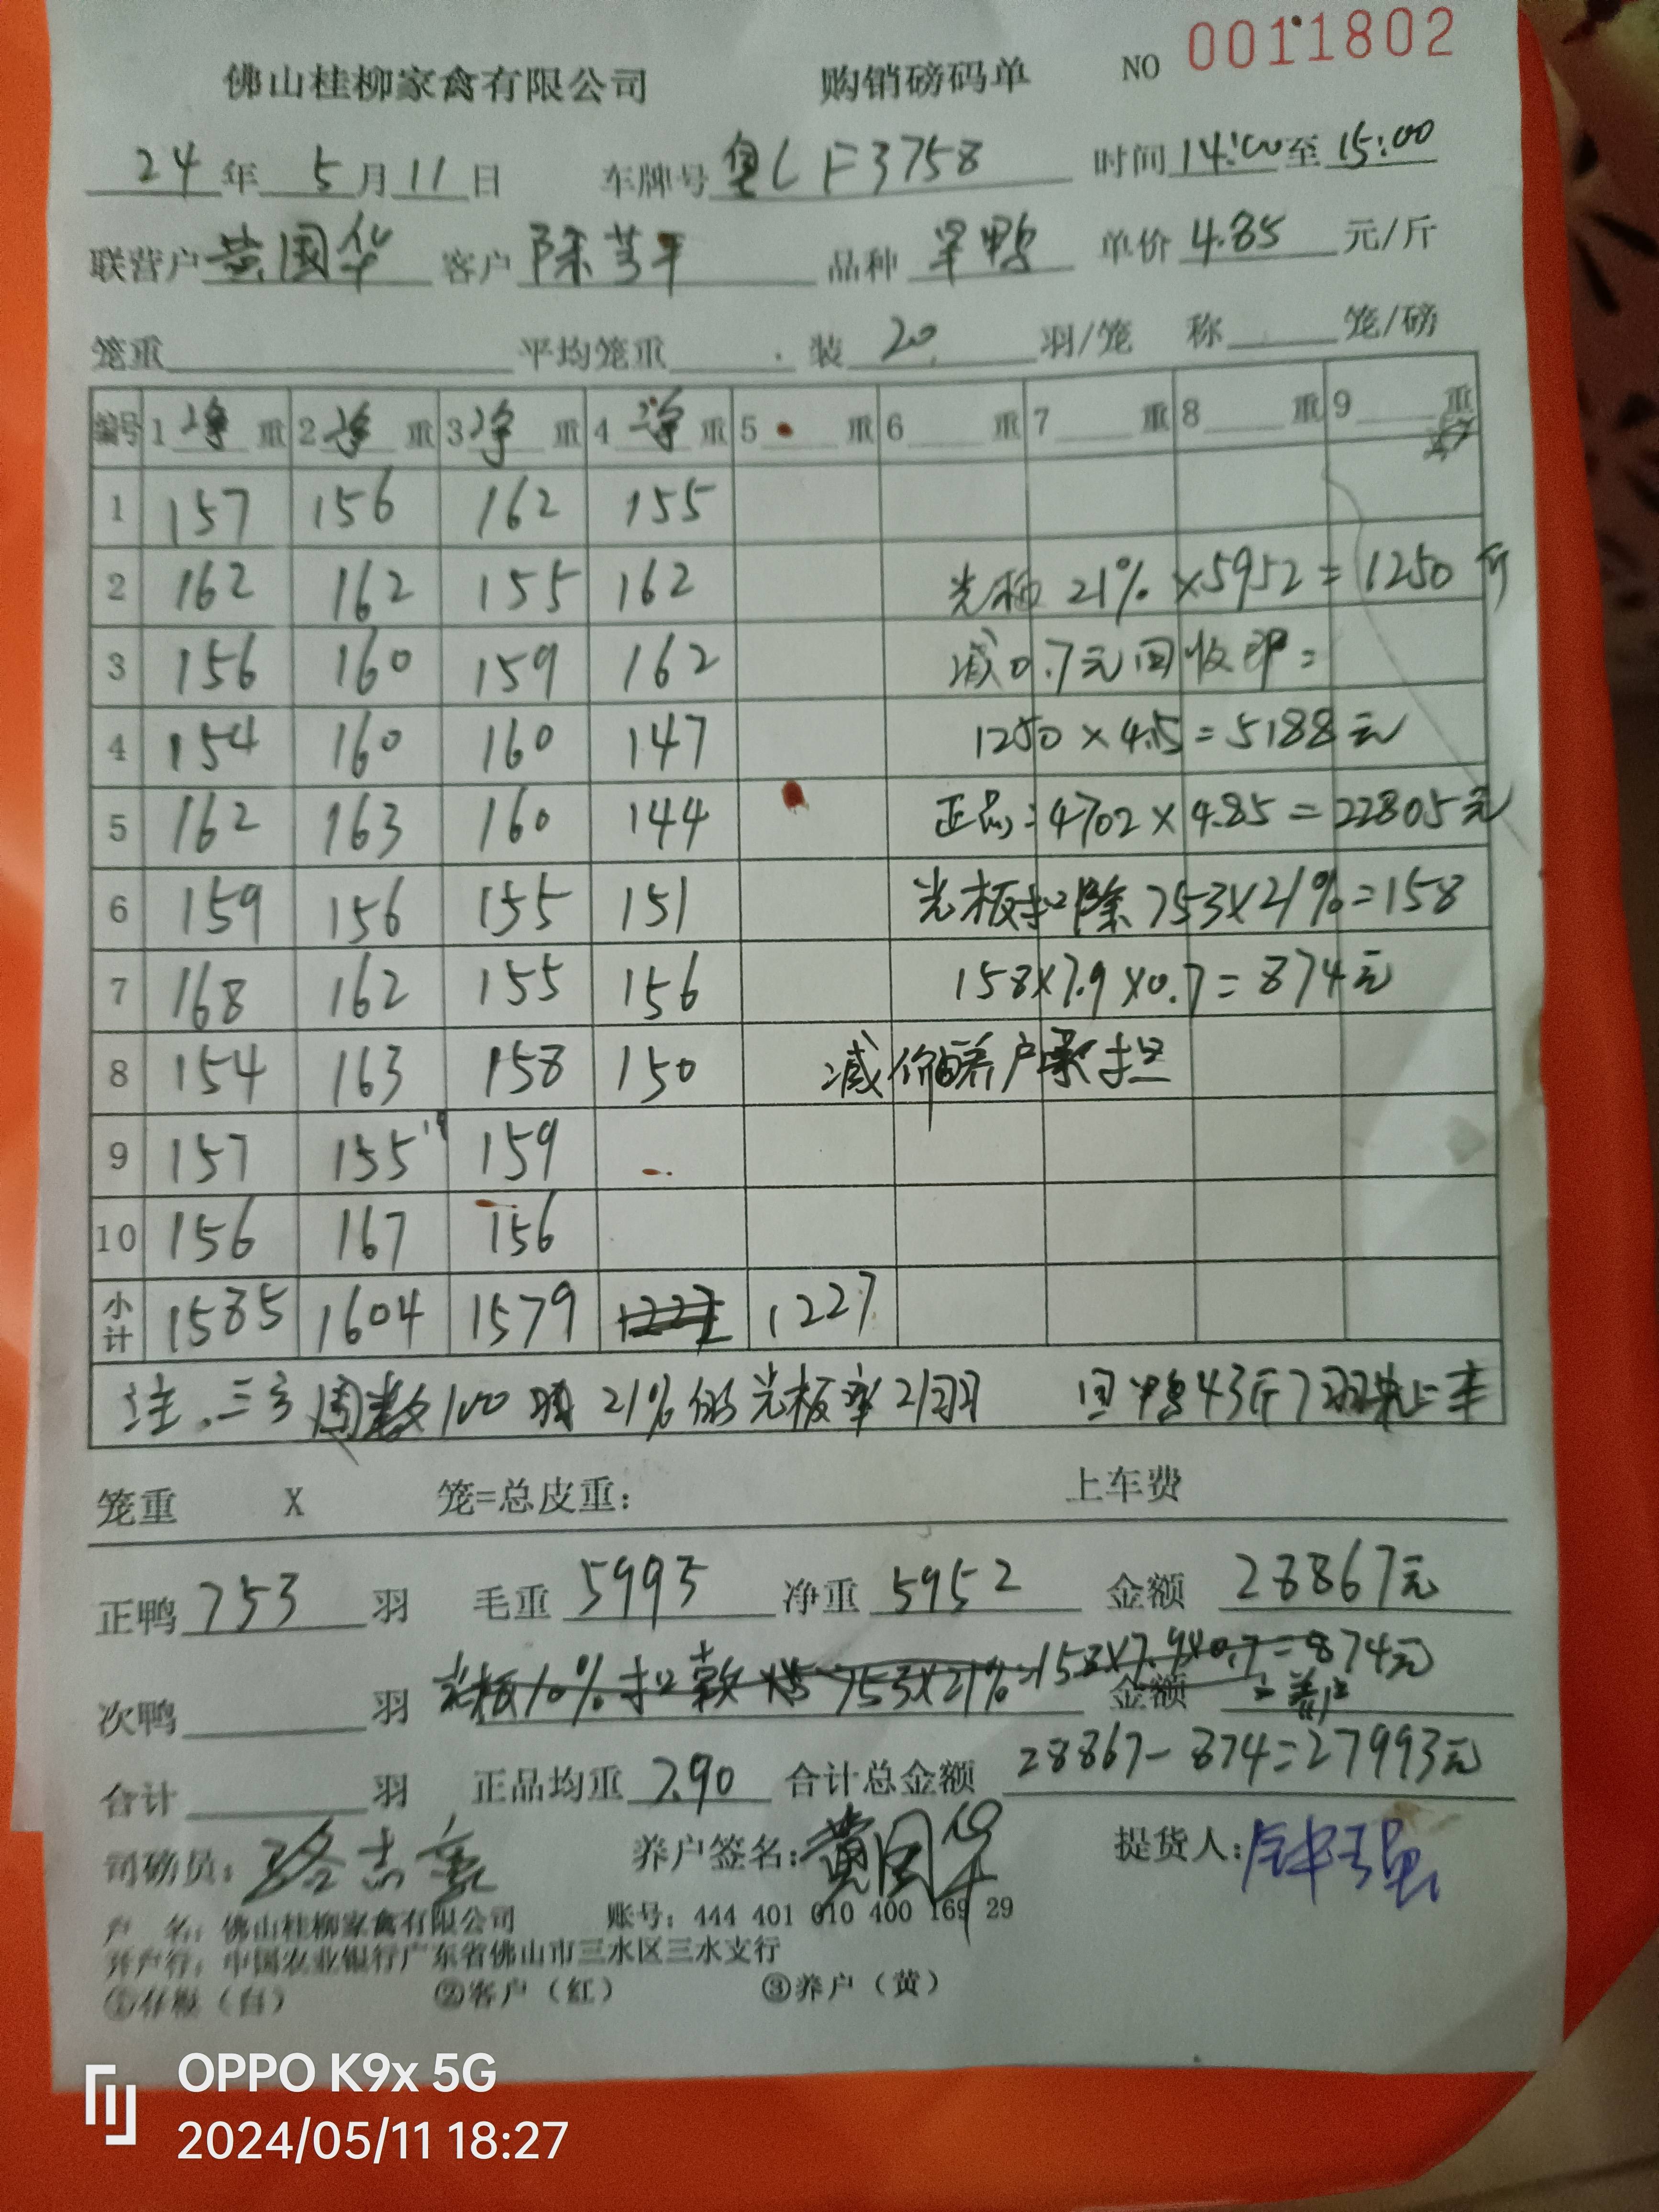 NO 0011802
佛山桂柳家禽有限公司 购销磅码单
24年5月11日 车牌号 粤CF3758 时间14:00至15:00
联营户 黄国华 客户 陈芳平 品种 单价 4.85 元/斤
笼重 平均笼重 装 20 羽/笼 称 笼/磅
编号 1 净 重 2 净 重 3 净 重 4 净 重 5 重 6 重 7 重 8 重 9 重
1 157 156 162 155
2 162 162 155 162 光板 21% ×5952=1250斤
3 156 160 159 162 减0.7元回收即=
4 154 160 160 147 1250×4.15=5188元
5 162 163 160 144 正品:4702×4.85=22805元
6 159 156 155 151 光板扣除 753×21%=158
7 168 162 155 156 158×7.9×0.7=874元
8 154 163 158 150 减价由养户承担
9 157 155 19 159
10 156 167 156
小计 1585 1604 1579 1227 1227
注. 三方 数100 21%的光板率21羽 回鸭43斤7羽 上车
笼重 X 笼=总皮重: 上车费
正鸭 753 羽 毛重 5995 净重 5952 金额 28867元
次鸭 羽 光板10%扣款 753×21%=158×7.9×0.7=874元 金额
合计 羽 正品均重 7.90 合计总金额 28867-874=27993元
司磅员: 养户签名: 黄国华 提货人:
户 名: 佛山桂柳家禽有限公司 账号: 444 401 010 400 169 29
开户行: 中国农业银行广东省佛山市三水区三水支行
①存根(白) ②客户(红) ③养户(黄)
OPPO K9x 5G
2024/05/11 18:27